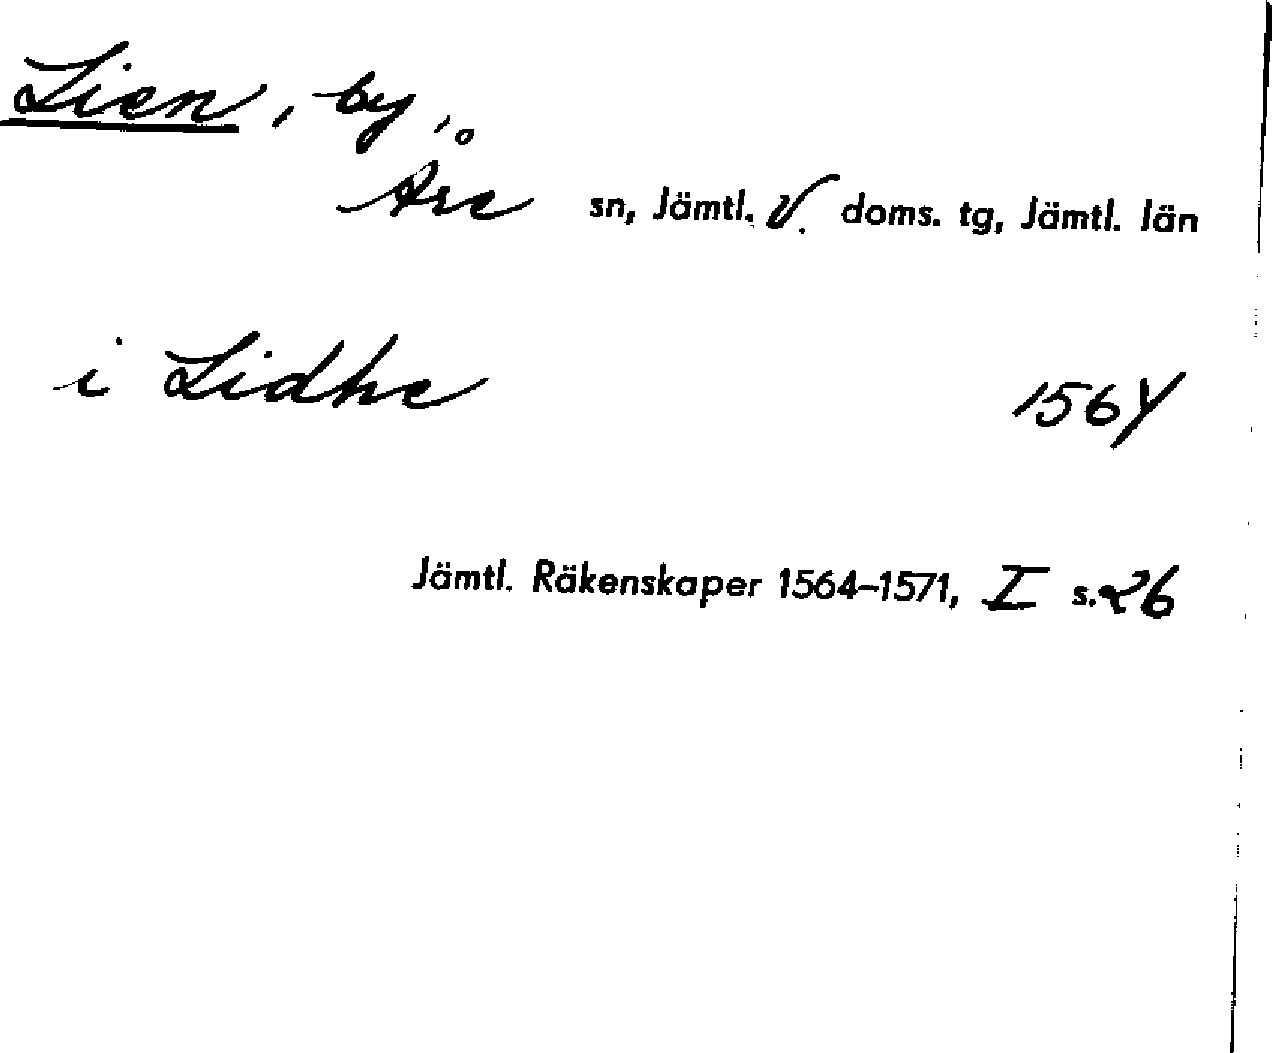 Lien, by,
Åre sn, Jämtl. V. doms. tg, Jämtl. län
i Lidhe 1564
Jämtl. Räkenskaper 1564–1571, I s. 26